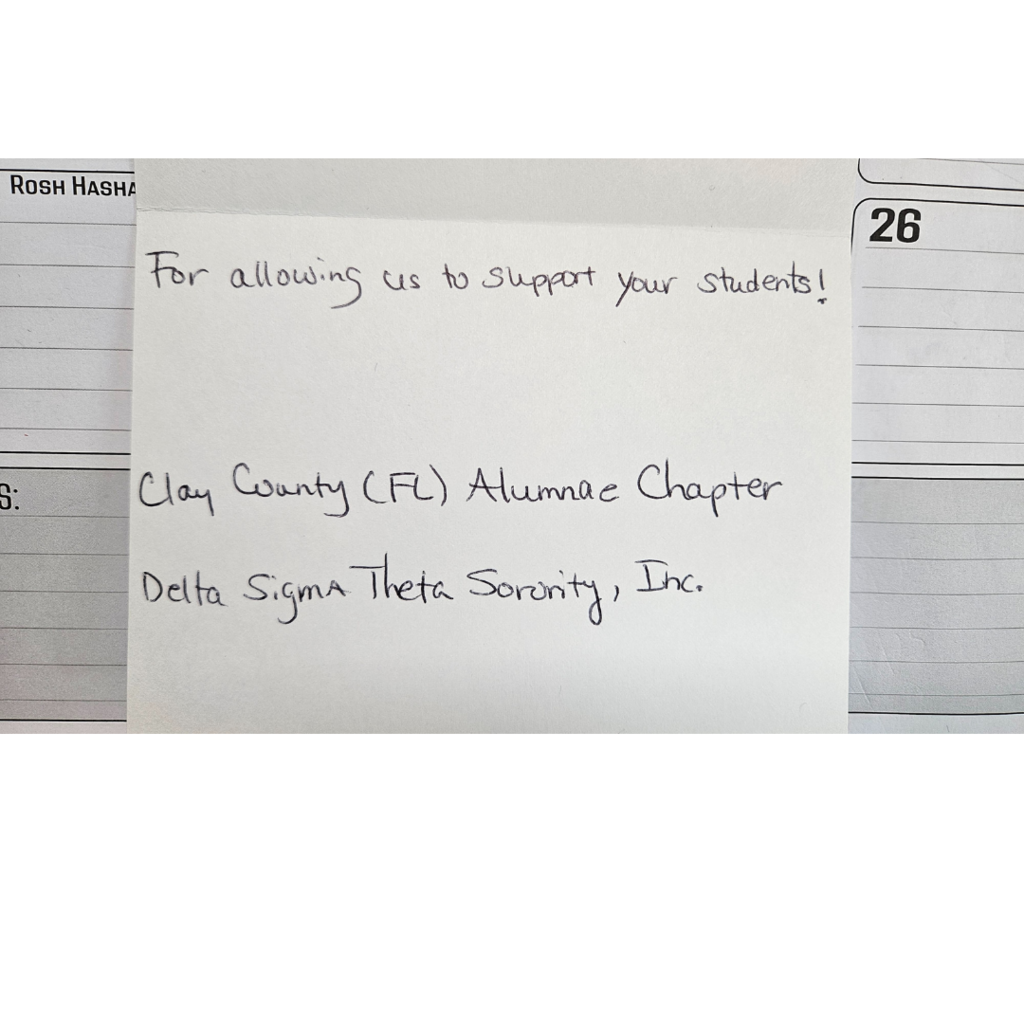 ROSH HASHA
26
For allowing us to support your students!
S:
Clay County (FL) Alumnae Chapter
Delta Sigma Theta Sorority, Inc.